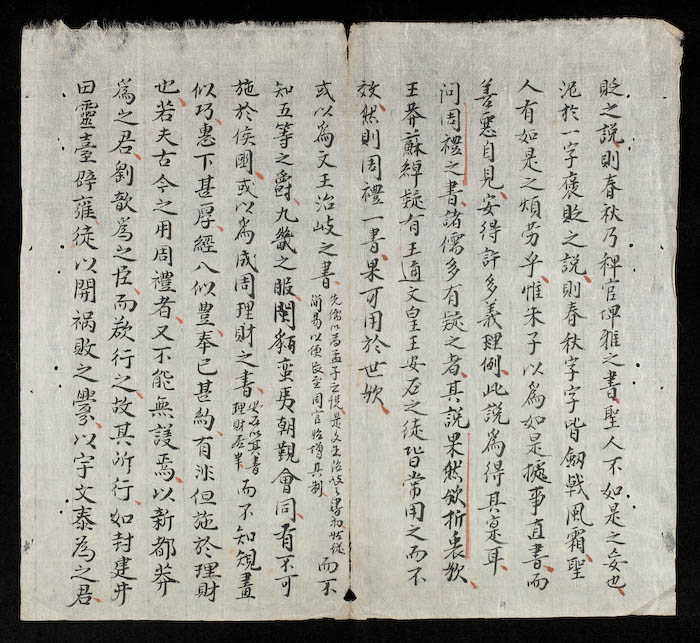 貶之説則春秋乃稗官埤雅之書聖人不如是之妄也
泥於一字褒貶之説則春秋字字皆劔戟風霜聖
人有如是之煩勞乎惟朱子以爲如是據事直書而
善惡自見安得許多義理例此説爲得其寔耳
问周禮之書諸儒多有疑之者其説果然欤折衷欤
王莽蘇綽疑有王通文皇王安石之徒皆常用之而不
效然則周禮一書果可用於世欤
或以爲文王治岐之書先儒以爲孟子之説是文王治岐之書初時從簡易以便民至周官始增其制而不
知五等之爵九畿之服閩貊蛮夷朝覲會同有不可
施於侯國或以爲成周理財之書安石以其書理財居半而不知規畫
似巧惠下甚厚經入似豊奉已甚約有非但施於理財
也若夫古今之用周禮者又不能無議焉以新都莽
爲之君劉歆爲之臣而欲行之故其所行如封建井
田靈臺辟雍徒以開禍敗之釁以宇文泰爲之君